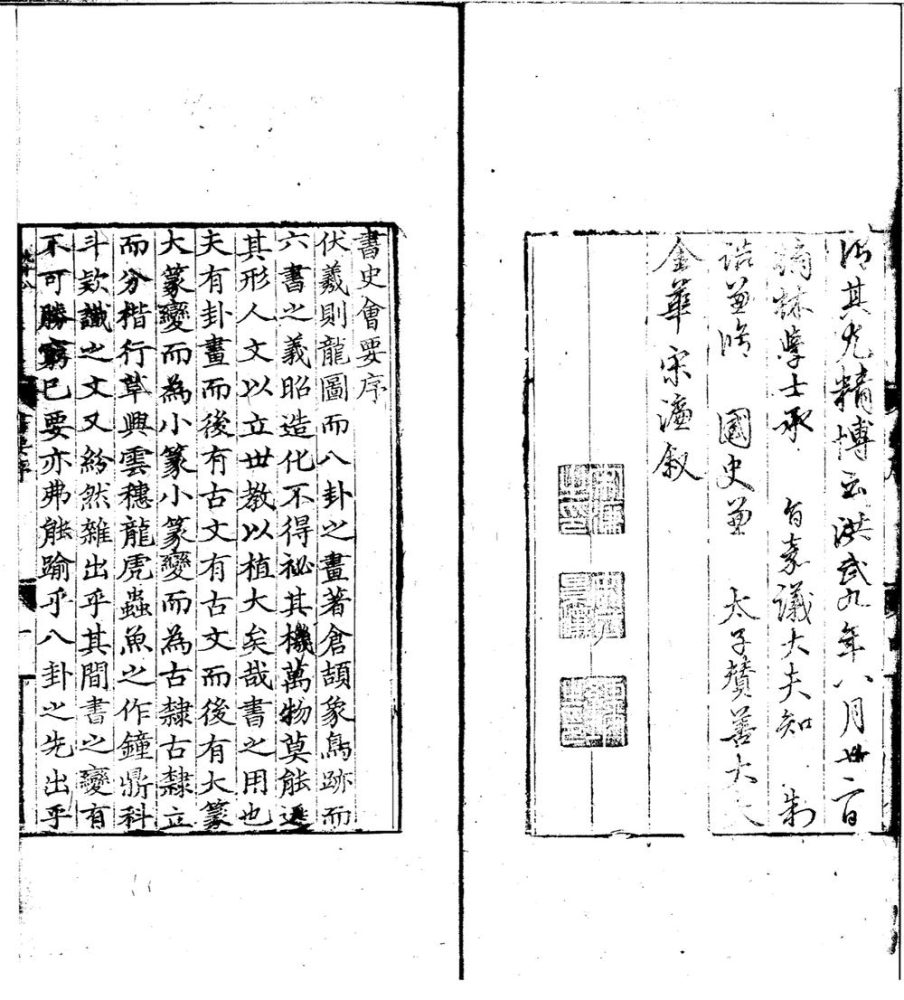 其尤精博云洪武九年八月廿二日
翰林學士承　旨嘉議大夫知　制
誥兼脩　國史兼　太子贊善大夫
金華宋濂叙
書史會要序
伏羲則龍圖而八卦之畫著倉頡象鳥跡而
六書之義昭造化不得祕其機萬物莫能遁
其形人文以立世教以植大矣哉書之用也
夫有卦畫而後有古文有古文而後有大篆
大篆變而為小篆小篆變而為古隸古隸立
而分楷行草興雲穗龍虎蟲魚之作鐘鼎科
斗欵識之文又紛然雜出乎其間書之變有
不可勝窮已要亦弗能踰乎八卦之先出乎